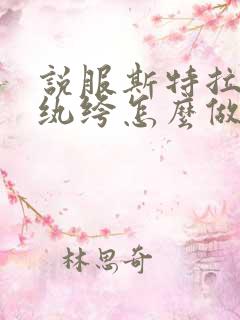 說服斯特拉
纨绔怎麼做
林思奇